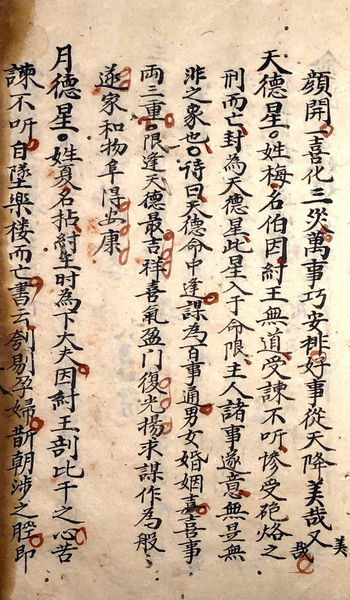 顔開一喜化三災萬事巧安排好事從天降美哉又美哉
天德星。姓梅名伯因紂王無道受諫不听慘受砲烙之
刑而亡封為天德星此星入于命限主人諸事遂意無昰無
非之象也。诗曰天德命中逢謀為百事通男女婚姻喜喜事
両三重。限逢天德最吉祥喜氣盈门復光揚求謀作為般
遂家和物阜得安康
月德星。姓夏名拈紂王時為下大夫因紂王剖比干之心苦
諫不听自墜樂楼而亡書云刳易孕婦斮朝涉之脛即